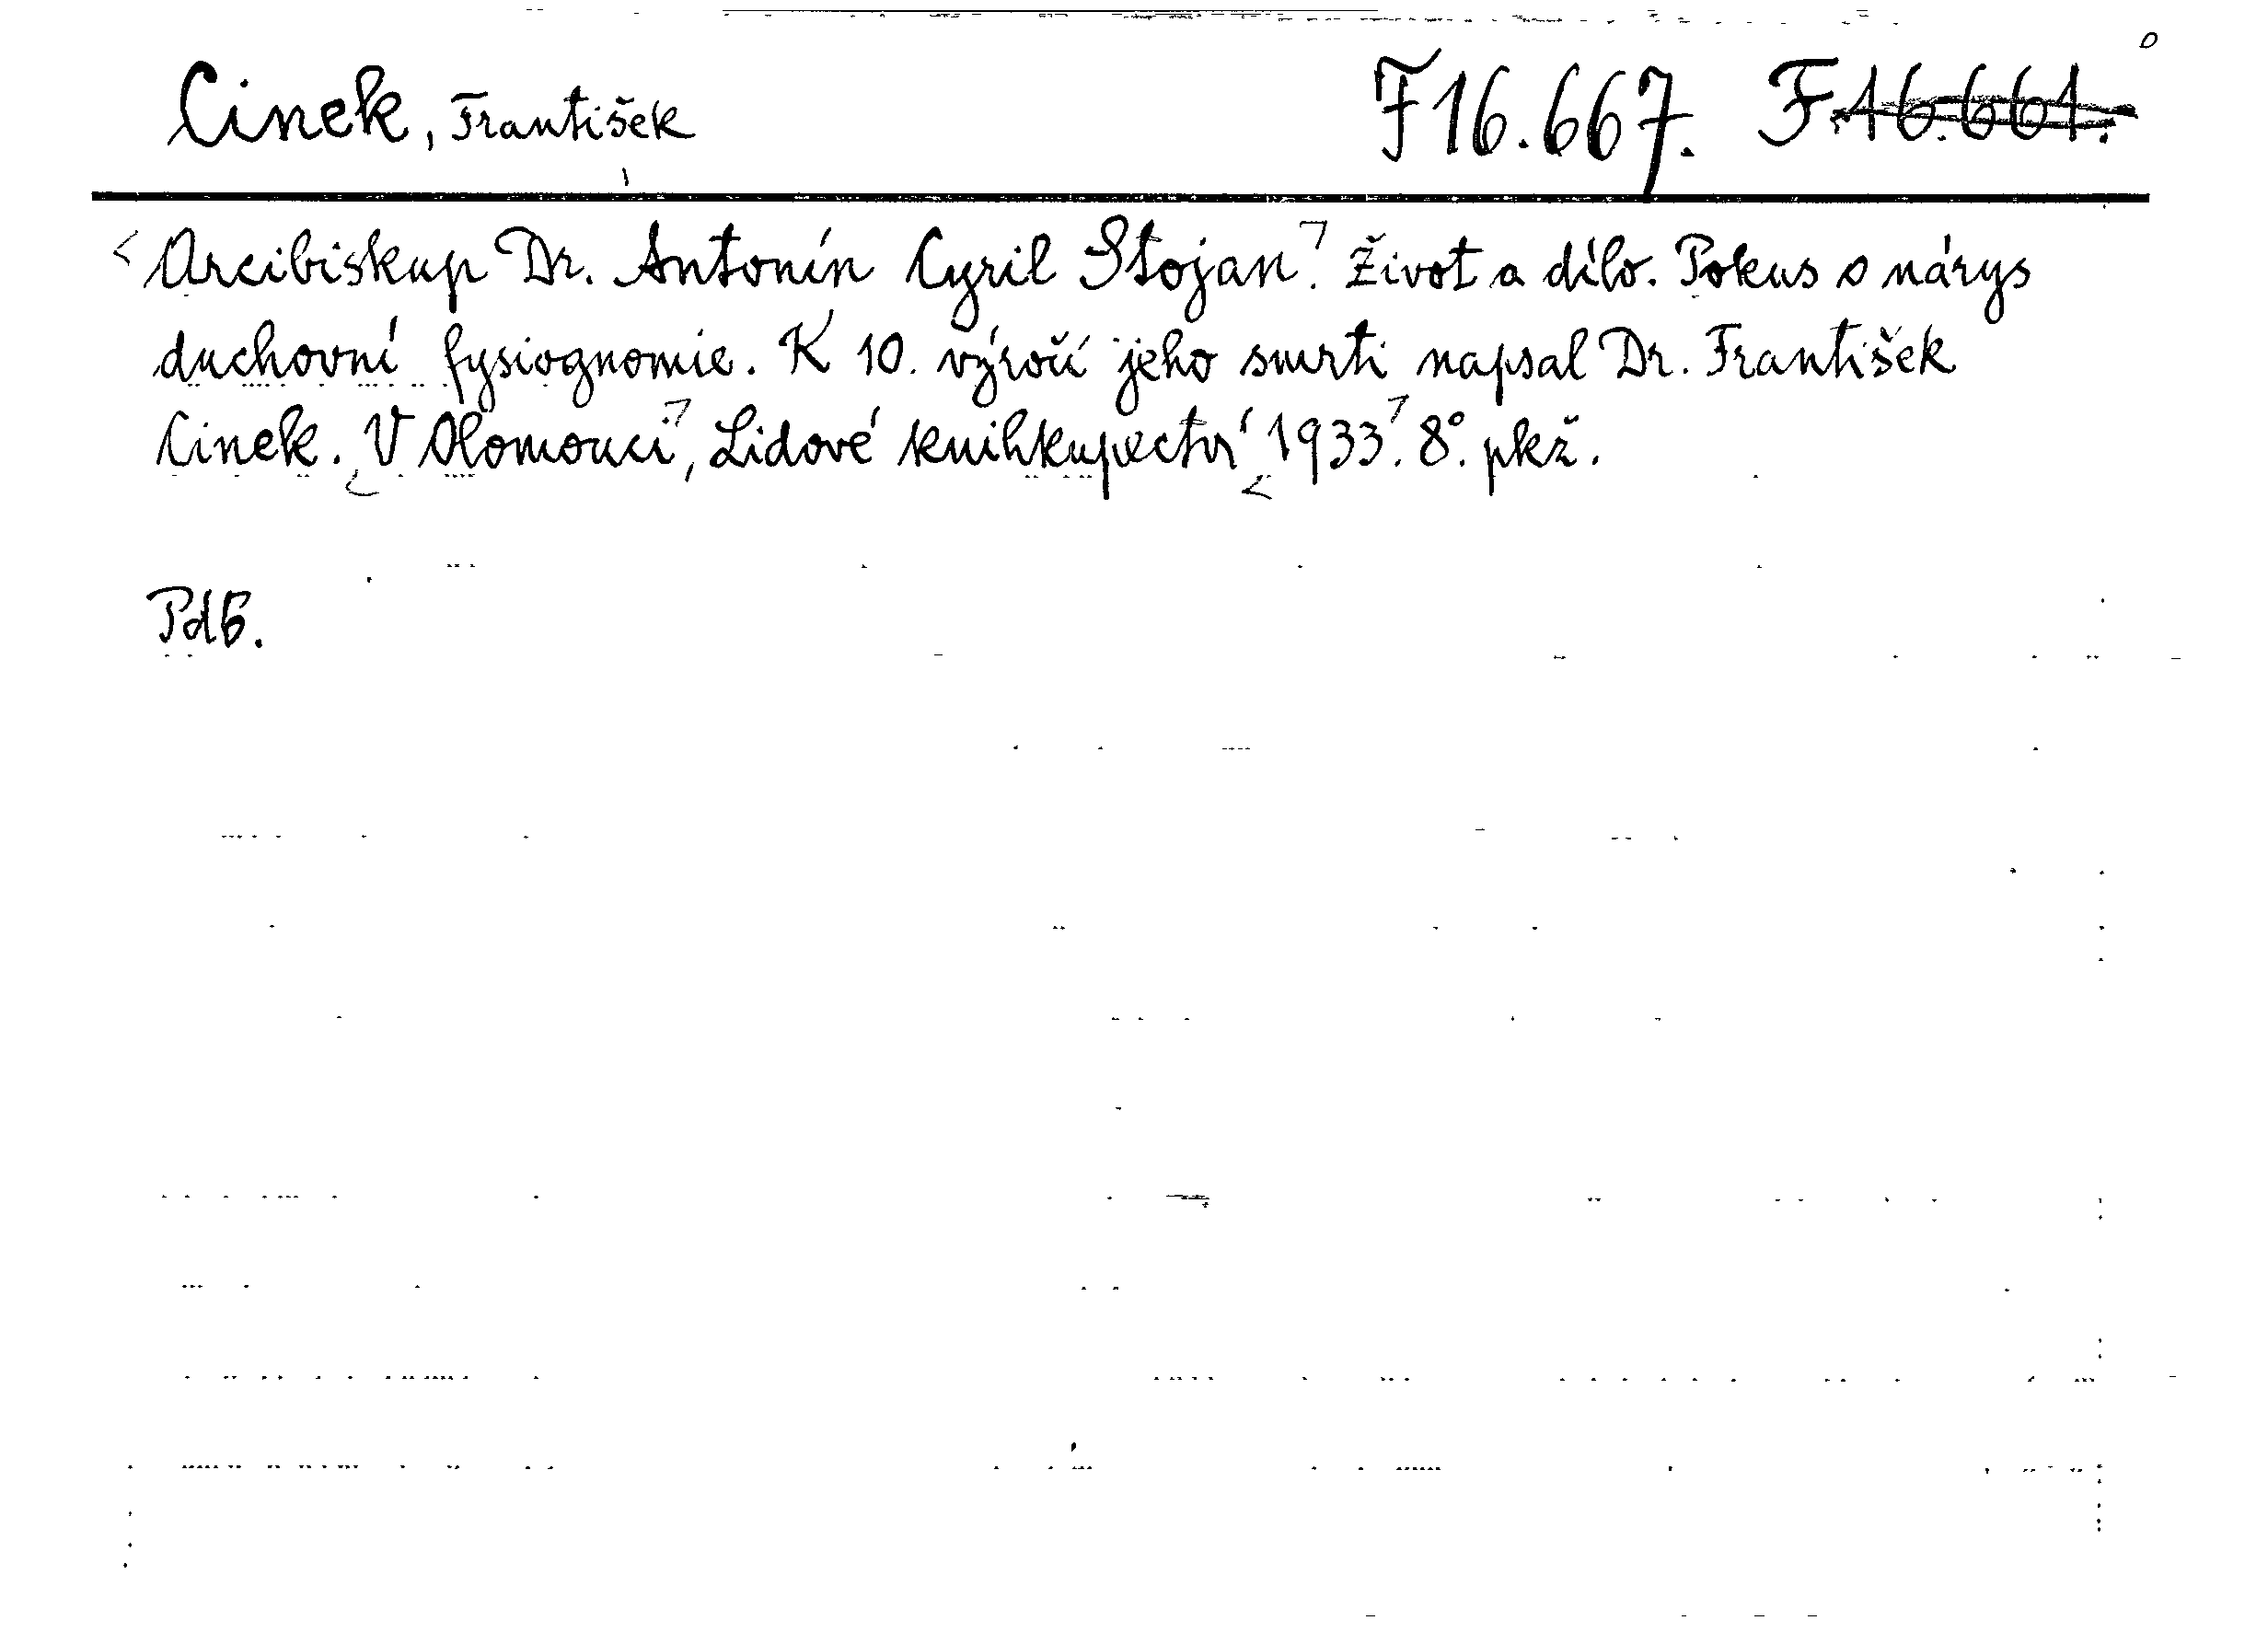 Cinek, František F 16.667. F. 16.661.
Arcibiskup Dr. Antonín Cyril Stojan. Život a dílo. Pokus o nárys
duchovní fysiognomie. K 10. výročí jeho smrti napsal Dr. František
Cinek. V Olomouci, Lidové knihkupectví 1933. 8°. pkž.